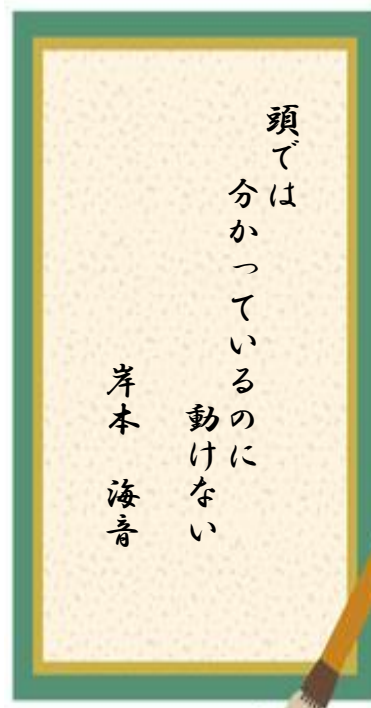 頭では
分かっているのに
動けない
岸本 海音